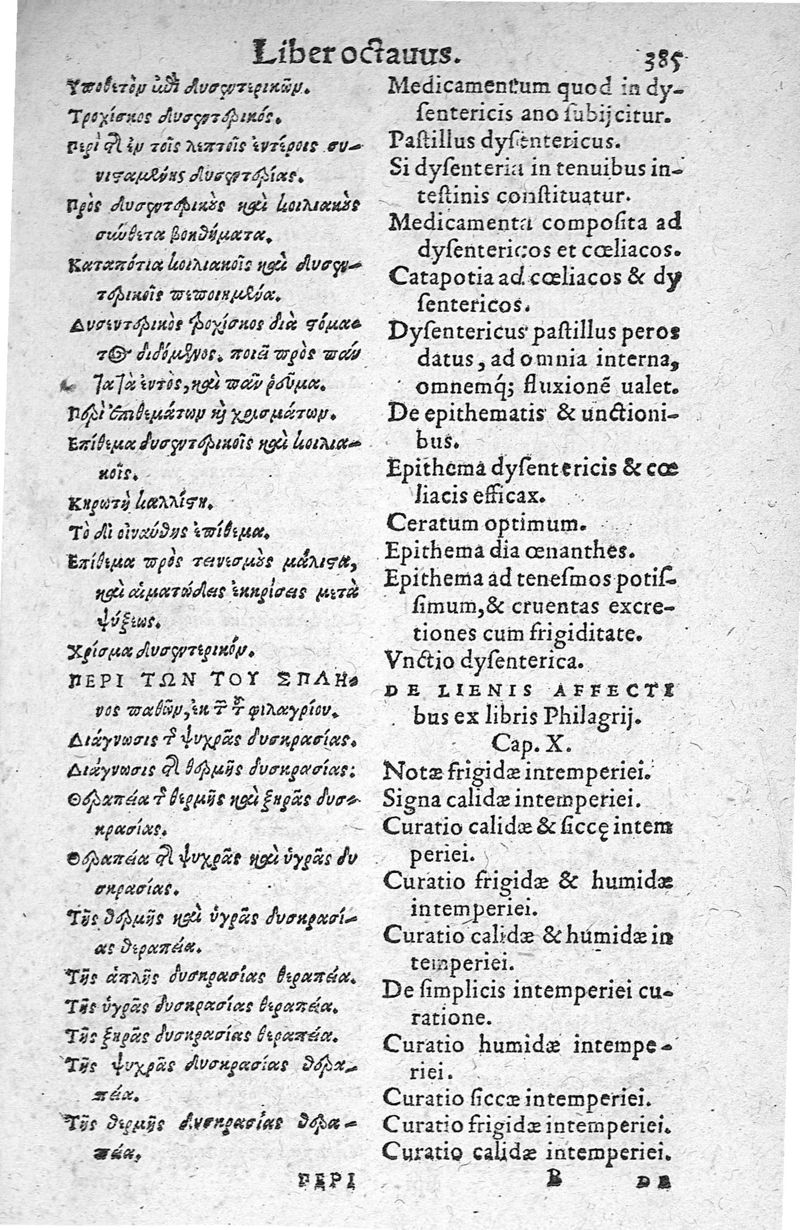 Liber octauus. 385
Ὑποθετὸν ἐπὶ δυσεντερικῶν.
Τροχίσκος δυσεντερικός.
Περὶ τῆς ἐν τοῖς λεπτοῖς ἐντέροις συ-
νισταμένης δυσεντερίας.
Πρὸς δυσεντερικοὺς καὶ κοιλιακοὺς
σύνθετα βοηθήματα.
Καταπότια κοιλιακοῖς καὶ δυσεν-
τερικοῖς πεποιημένα.
Δυσεντερικὸς τροχίσκος διὰ στόμα-
τος διδόμενος. ποιεῖ πρὸς πάν
τα τὰ ἐντὸς, καὶ πᾶν ῥεῦμα.
Περὶ ἐπιθεμάτων καὶ χρισμάτων.
Ἐπίθεμα δυσεντερικοῖς καὶ κοιλια-
κοῖς.
Κηρωτὴ καλλίστη.
Τὸ δι οἰνάνθης ἐπίθεμα.
Ἐπίθεμα πρὸς τεινεσμοὺς μάλιστα,
καὶ αἱματώδεις ἐκκρίσεις μετὰ
ψύξεως.
Χρίσμα δυσεντερικόν.
ΠΕΡΙ ΤΩΝ ΤΟΥ ΣΠΛΗ-
νος παθῶν, ἐκ τῶν τοῦ φιλαγρίου.
Διάγνωσις τῆς ψυχρᾶς δυσκρασίας.
Διάγνωσις τῆς θερμῆς δυσκρασίας.
Θεραπεία τῆς θερμῆς καὶ ξηρᾶς δυσ-
κρασίας.
Θεραπεία τῆς ψυχρᾶς καὶ ὑγρᾶς δυ
σκρασίας.
Τῆς θερμῆς καὶ ὑγρᾶς δυσκρασί-
ας θεραπεία.
Τῆς ἁπλῆς δυσκρασίας θεραπεία.
Τῆς ὑγρᾶς δυσκρασίας θεραπεία.
Τῆς ξηρᾶς δυσκρασίας θεραπεία.
Τῆς ψυχρᾶς δυσκρασίας θερα-
πεία.
Τῆς θερμῆς δυσκρασίας θερα-
πεία.
ΠΕΡΙ
Medicamentum quod in dy-
sentericis ano subijcitur.
Pastillus dysentericus.
Si dysenteria in tenuibus in-
testinis constituatur.
Medicamenta composita ad
dysentericos et cœliacos.
Catapotia ad cœliacos & dy
sentericos.
Dysentericus pastillus peros
datus, ad omnia interna,
omnemq; fluxionē ualet.
De epithematis & unctioni-
bus.
Epithema dysentericis & cœ
liacis efficax.
Ceratum optimum.
Epithema dia œnanthes.
Epithema ad tenesmos potis-
simum, & cruentas excre-
tiones cum frigiditate.
Vnctio dysenterica.
DE LIENIS AFFECTI
bus ex libris Philagrij.
Cap. X.
Notæ frigidæ intemperiei.
Signa calidæ intemperiei.
Curatio calidæ & siccę intem
periei.
Curatio frigidæ & humidæ
intemperiei.
Curatio calidæ & humidæ in
temperiei.
De simplicis intemperiei cu-
ratione.
Curatio humidæ intempe-
riei.
Curatio siccæ intemperiei.
Curatio frigidæ intemperiei.
Curatio calidæ intemperiei.
B DE